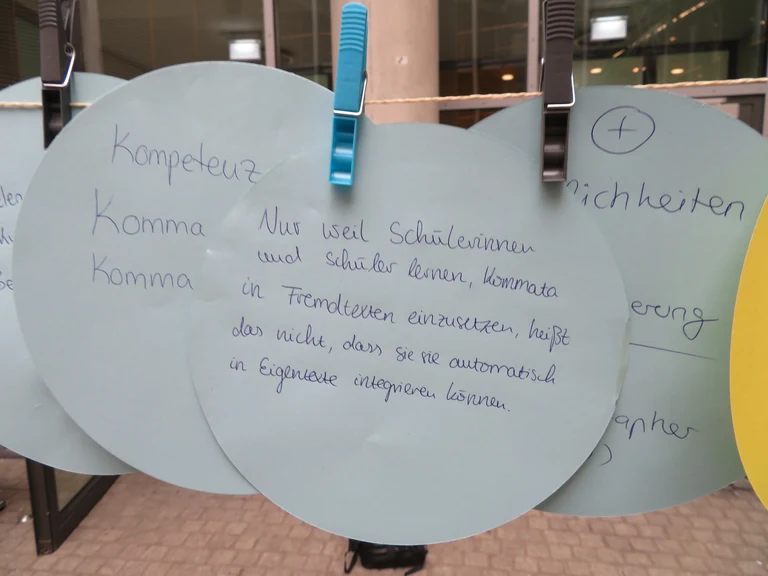 Kompetenz
Komma
Komma
Nur weil Schülerinnen
und Schüler lernen, Kommata
in Fremdtexten einzusetzen, heißt
das nicht, dass sie sie automatisch
in Eigentexte integrieren können.
+
ichkeiten
erung
apher
)